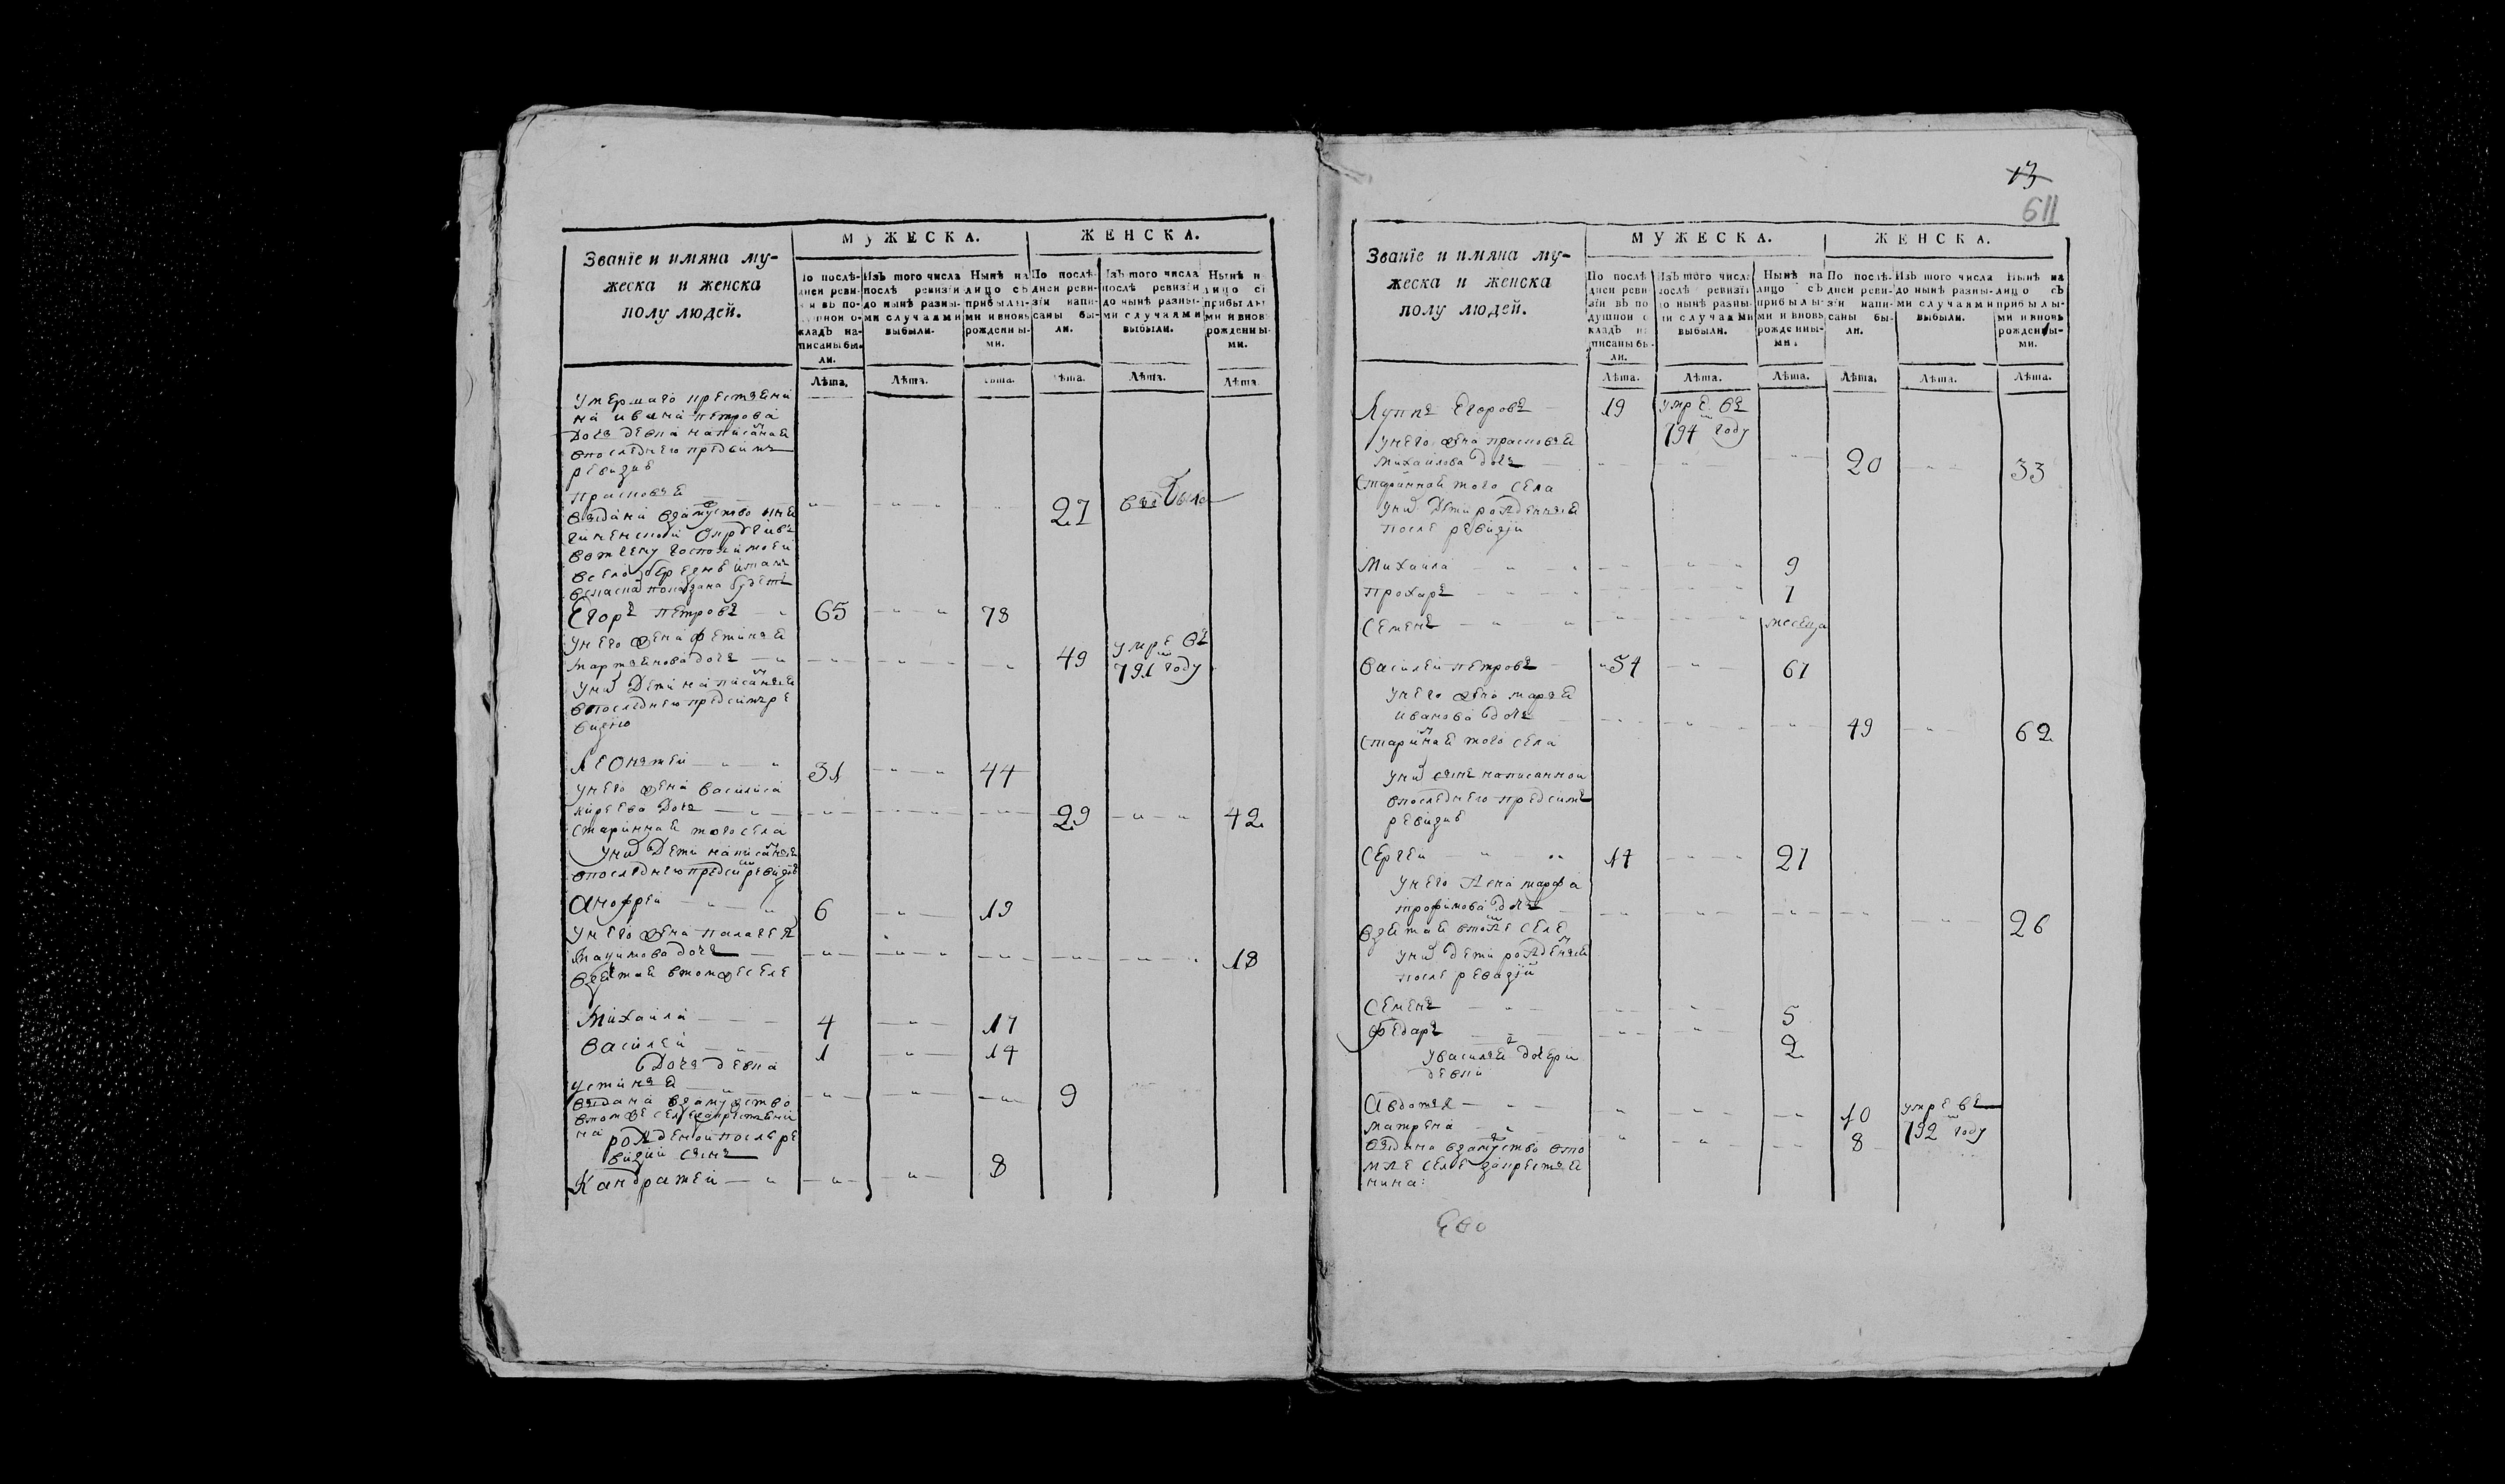 Званїе и имяна му-
жеска и женска
полу людей.
МУЖЕСКА.
ЖЕНСКА.
По послѣ-
дней реви-
зїи въ по-
душной о-
кладъ на-
писаны бы-
ли.
Изъ того числа
послѣ ревизїи
до нынѣ разны-
ми случаями
выбыли.
Нынѣ на
лицо съ
прибылы-
ми и вновь
рожденны-
ми.
По послѣ-
дней реви-
зїи напи-
саны бы-
ли.
Изъ того числа
послѣ ревизїи
до нынѣ разны-
ми случаями
выбыли.
Нынѣ н
лицо съ
прибылы
ми и внов
рожденны-
ми.
Лѣта. Лѣта. Лѣта. Лѣта. Лѣта. Лѣта.
умершаго крестьяни
на ивана петрова
дочь девка написаная
впоследнею предсимъ
ревизие
прасковья 27 выбыла
выдана взамужство
Егоръ петровъ 65 78
унего жена фетинья
мартынова дочь 49 умре въ
791 году
уних дети написаныя
впоследнею предсимъ ре
визию
Леонтей 31 44
унего жена василиса
киреева дочь 29 42
старинная того села
уних дети написаныя
впоследнею предсим ревизие
Анофрей 6 19
унего жена палагея
дочь 18
взятая втомже селе
Михаила 4 17
василей 1 14
Дочь девка
устинья 9
выдана взамужство
втомже селе закрестьяни
на
рожденой после ре
визии сынъ
Кандратей 8
13
611
Званїе и имяна му-
жеска и женска
полу людей.
МУЖЕСКА.
ЖЕНСКА.
По послѣ
дней реви
зїи въ по
душной о
кладъ н
писаны бы-
ли.
Изъ того числа
послѣ ревизїи
до нынѣ разны-
ми случаями
выбыли.
Нынѣ на
лицо съ
прибылы-
ми и вновь
рожденны-
ми.
По послѣ-
дней реви-
зїи напи-
саны бы-
ли.
Изъ того числа
до нынѣ разны-
ми случаями
выбыли.
Нынѣ на
лицо съ
прибылы-
ми и вновь
рожденны-
ми.
Лѣта. Лѣта. Лѣта. Лѣта. Лѣта. Лѣта.
Луппъ Егоровъ 19 умре въ
794 году
унего жена прасковья
михайлова дочь 20 33
старинная того села
уних дети рожденныя
после ревизии
Михаила 9
прохаръ 7
Семенъ месеца
василей петровъ 54 67
унего жена марья
иванова дочь 49 62
старинная того села
уних сынъ написанной
впоследнею предсимъ
ревизие
Сергей 14 27
унего жена марфа
трофимова дочь 26
взятая втомже селе
уних дети рожденыя
после ревизии
Семенъ 5
федаръ 2
увасилья дочери
девки
Авдотья 10 умре въ
792 году
матрена 8
выдана взамужство вто
мже селе закрестья
нина:
Ево